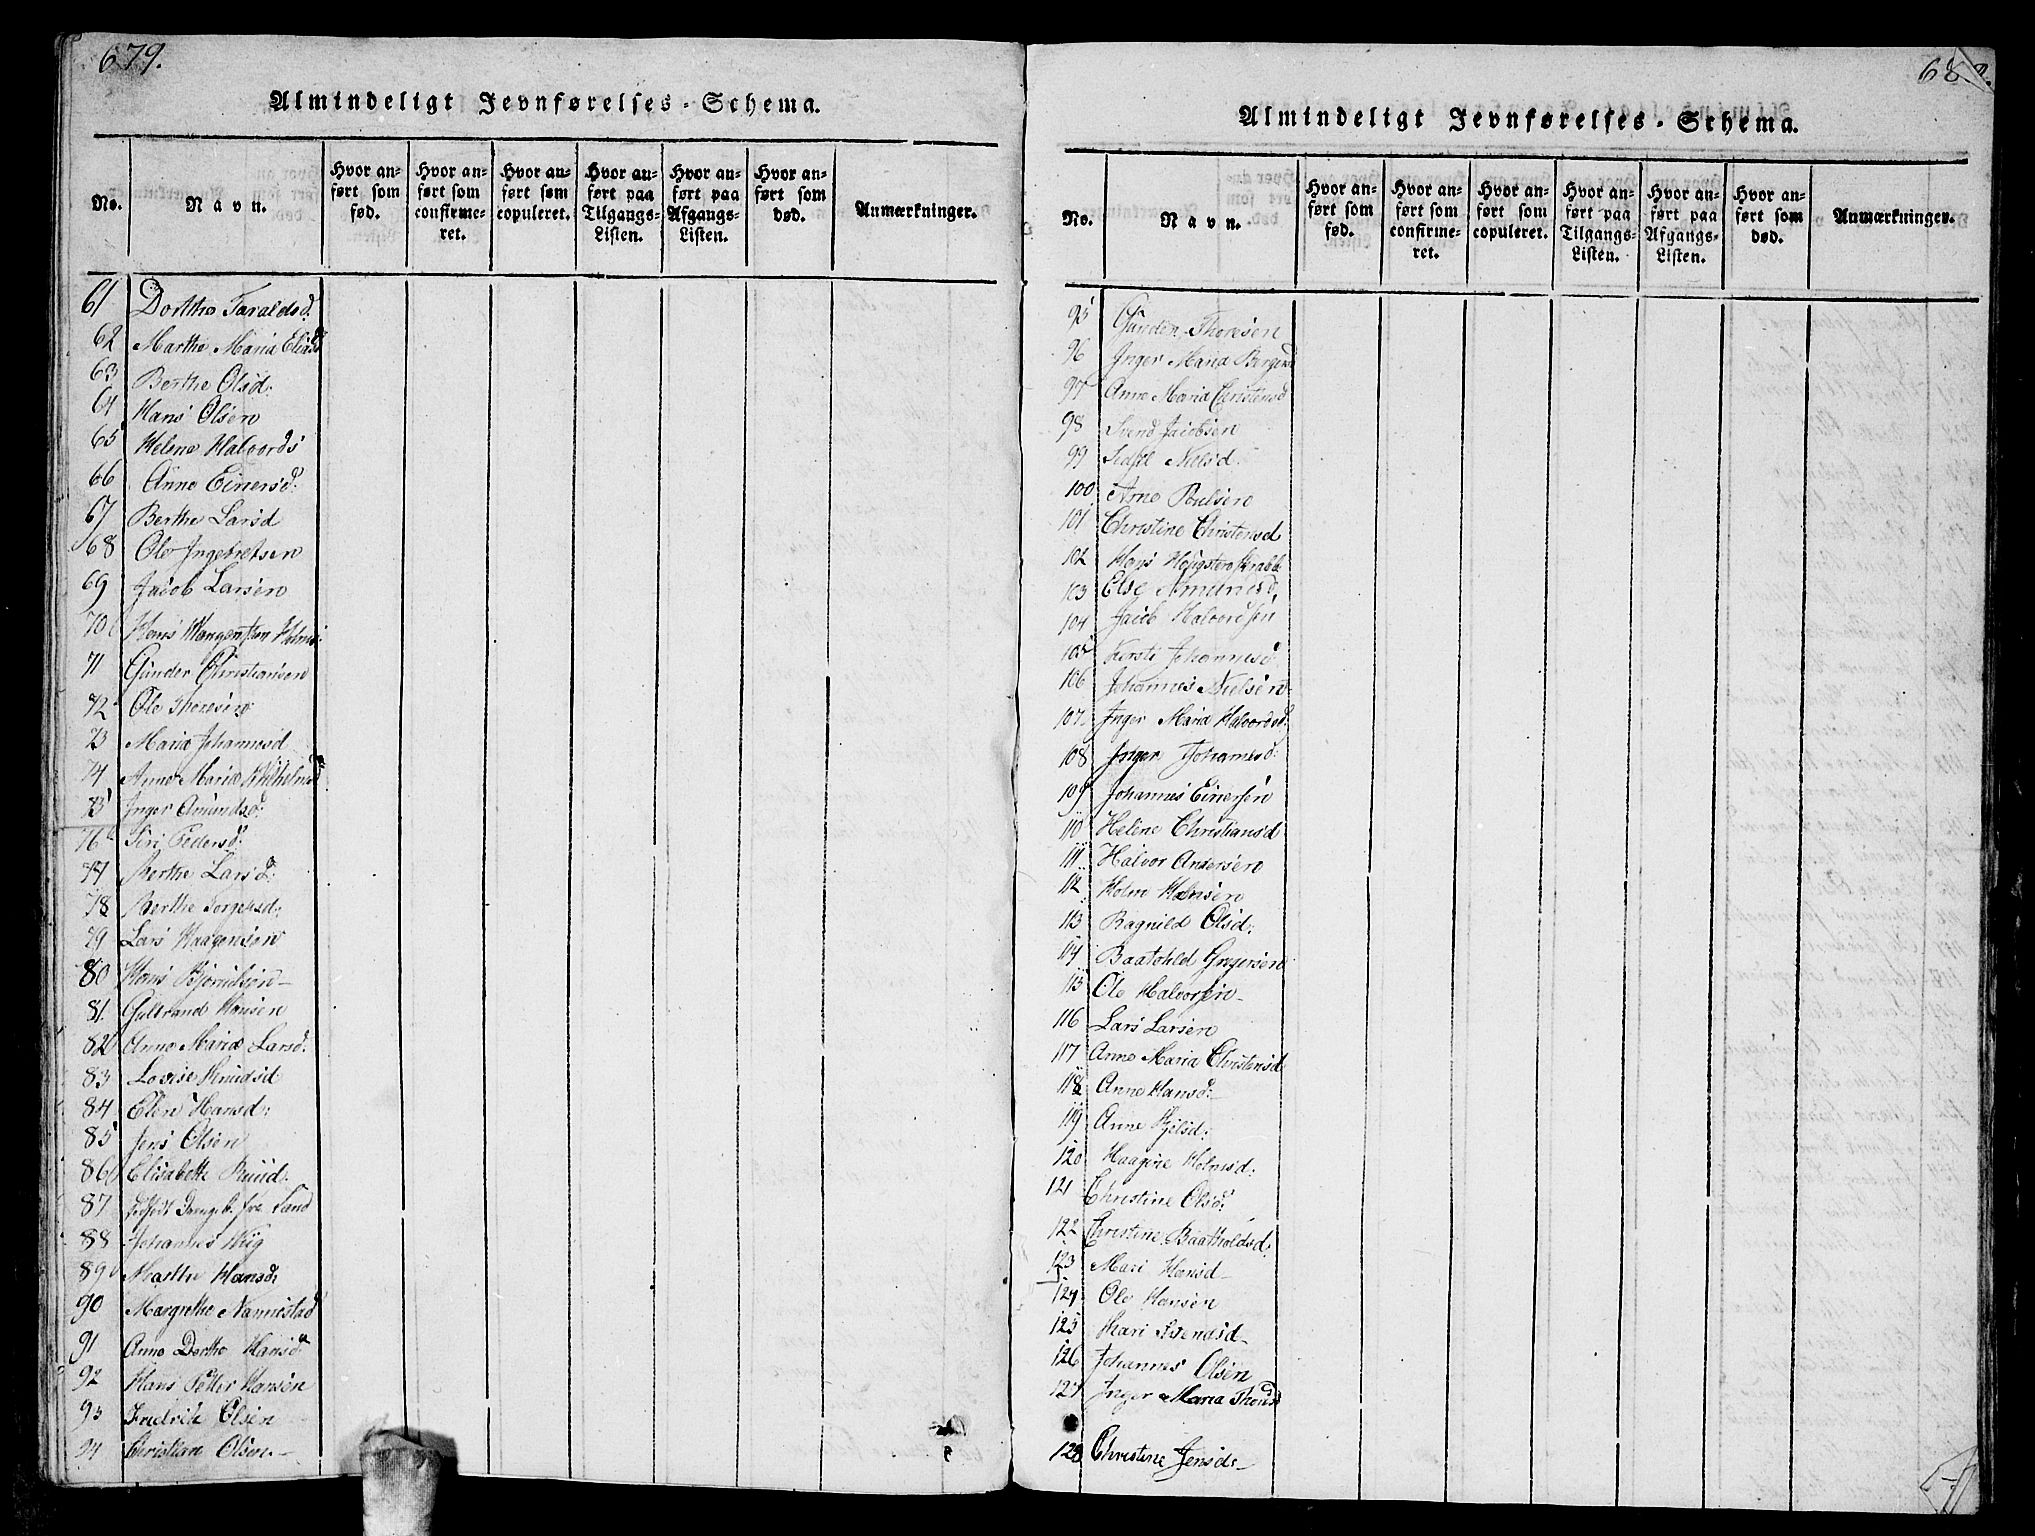 679.
Almindeligt Jevnførelses-Schema.
No.
Navn.
Hvor an-
ført som
fød.
Hvor an-
ført som
confirme-
ret.
Hvor an-
ført som
copuleret.
Hvor an-
ført paa
Tilgangs-
Listen.
Hvor an-
ført paa
Afgangs-
Listen.
Hvor an-
ført som
død.
Anmærkninger.
61 Dorthe Taraldsd.
62 Marthe Maria Eliasd
63 Berthe Olsd.
64 Hans Olsen
65 Helene Halvords
66 Anne Einersd.
67 Berthe Larsd
68 Ole Ingebretsen
69 Jacob Larsen
70 Hans
71 Gunder Christiansen
72 Ole Thoresen
73 Maria Johannesd
74 Anne Maria Wilhelmsd
75 Inger Amundsd.
76 Siri Pedersd.
77 Berthe Larsd.
78 Berthe Torgersd.
79 Lars Haagensen
80 Hans Bjørnsen
81. Gulbrand Hansen
82 Anne Maria Larsd.
83 Lovise Knudsd
84 Elen Hansd.
85 Jens Olsen
86 Elisabethe Ruud.
87 fra Sand
88 Johannes Wiig
89 Marthe Hansd.
90 Margrethe Nannestad
91 Anne Dorthe Hansd.
92 Hans Petter Hansen
93 Fredrik Olsen
94 Christian Olsen.
Almindeligt Jevnførelses-Schema.
No.
Navn.
Hvor an-
ført som
fød.
Hvor an-
ført som
confirme-
ret.
Hvor an-
ført som
copuleret.
Hvor an-
ført paa
Tilgangs-
Listen.
Hvor an-
ført paa
Afgangs-
Listen.
Hvor an-
ført som
død.
Anmærkninger.
95 Gunder Thoresen
96 Inger Maria
97 Anne Maria Christensd
98 Svend Jacobsen
99 Nielsd.
100 Arne Poulsen
101 Christine Christensd
102 Hans
103 Else Amundsd.
104 Jacob Halvorsen
105 Kersti Johannesd.
106 Johannes Nielsen
107. Inger Maria Halvordsd.
108 Inger Johannesd.
109 Johannes Einersen
110 Helene Christiansd
111 Halvor Andersen
112 Holm Hansen
113 Ragnild Olsd.
114 Baathold Gregersen
115 Ole Halvorsen
116 Lars Larsen
117 Anne Maria Christensd
118 Anne Hansd.
119 Anne
120 Haagine Holmsd.
121 Christine Olsd.
122 Christine Baatholdsd.
123 Mari Hansd
124 Ole Hansen
125 Kari Svendsd
126 Johannes Olsen
127 Inger Maria
128 Christine Jensd.